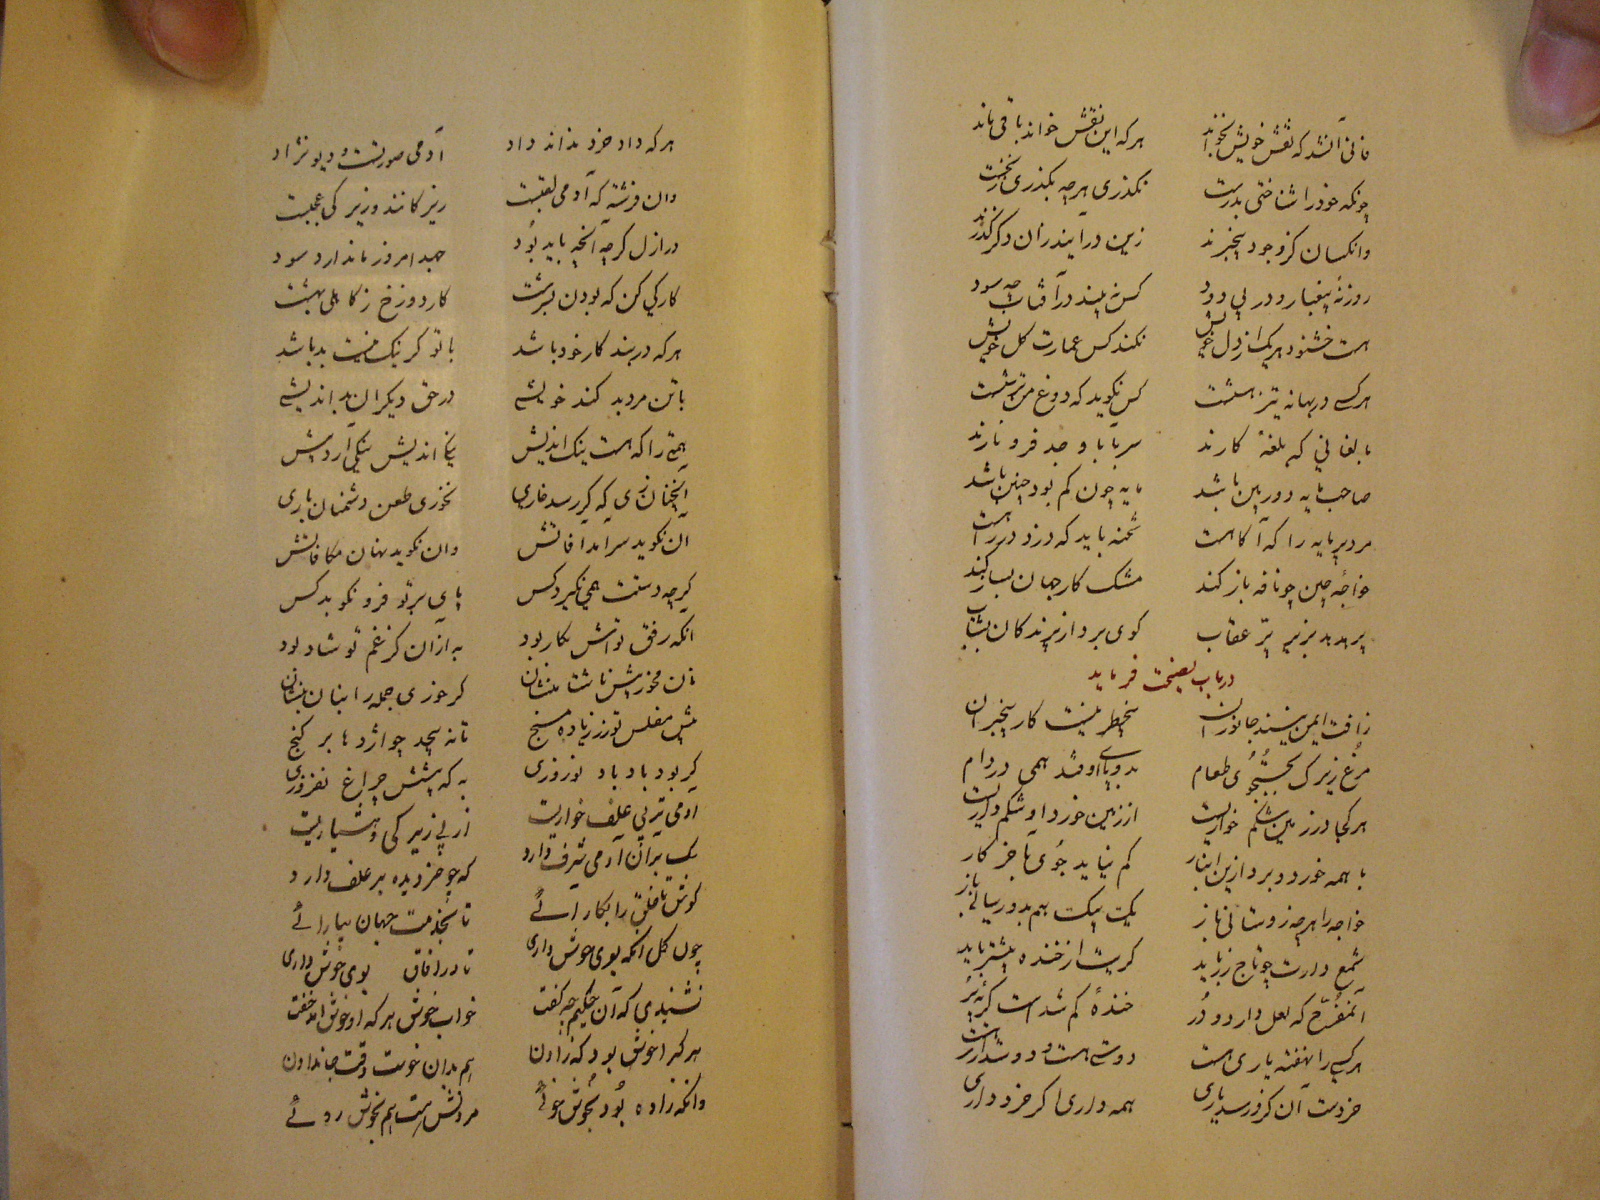 فانی آنشد که نقش خویش نخواند هر که این نقش خواند باقی ماند
چونکه خود را شناختی بدرست نگذری گرچه بگذری ز نخست
وانکسان کز وجود بیخبرند زین در آیند زان دگر گذرند
روزنه بیغبار و در بی دود کس نه بیند در آفتاب چه سود
هست خشنود هر یک از دل خویش نکند کس عمارت کل خویش
هر کسی در بهانه تیز هشست کس نکوید که دوغ من ترشست
بالغانی که بلغهٔ کارند سر بابا و جد فرو نارند
صاحب مایه دوربین باشد مایه چون کم بود چنین باشد
مرد پرمایه را که آکاهست شحنه باید که دزد در راهست
خواجهٔ چین چو نافه باز کند مشک کار جهان بساز کند
پر هدهد بزیر پر عقاب کوی برد از پرندکان بشتاب
در باب نصیحت فرماید
ز آفت ایمن نیند جانوران بیخطر نیست کار بیخبران
مرغ زیرک بجستجوی طعام بدو پای اوفتد همی در دام
هر کجا در زمین شکم خواریست از زمین خورد او شکم واریست
با همه خورد و برد ازین انبار کم نیاید جوی بآخر کار
خواجه را هر چه زو ستانی باز یک بیک هم بدو رسانی باز
شمع وارت چو تاج زر باید کریه‌ات از خنده بیشتر باید
آن مفرح که لعل دارد و در خندهٔ کم شدست کریهٔ پر
هر کسی را نهفته یاری هست دوستی هست و دوستداری هست
خردست آن کزو رسد یاری همه داری اگر خرد داری
هر که داد خرد نداند داد آدمی صورتست و دیو نژاد
وان فرشته که آدمی لقبست زیرکانند و زیرکی عجبست
در ازل کرده آنچه باید بود جهد امروز ما ندارد سود
کار کی کن که بودن بهشت کار دوزخ ز کاهلی بهشت
هر که در بند کار خود باشد با تو گر نیک نیست بد باشد
با تن مرد بد کند خویشی در حق دیکران بد اندیشی
همتی را که هست نیک اندیش نیکی اندیش نیکی آرد پیش
آنچنان زی که گر رسد خاری نخوری طعن دشمنان باری
آن نکوید سرآمد آفاتش وان نکوید نهان مکافاتش
گرچه دستت همی نگیرد کس پای بر تو فرو نکوبد کس
آنکه رفق تواش بکار بود به از آن کز غم تو شاد بود
نان مخور پیش ناشتا منشان گر خوری جمله را بنان بنشان
پیش مفلس زر زیاده مسنج تا نه پیچد چو اژدها بر گنج
گر بود باد باد نوروزی به که پیشش چراغ نفروزی
آدمی نز پی علف خواریست از پی زیرکی و هشیاریست
سگ بر آن آدمی شرف دارد که چو خر دیده بر علف دارد
کوش تا خلق را بکار آئی تا بخدمت جهان بیارائی
چون گل آنکه بوی خوش داری تا در آفاق بوی خوش داری
نشنیدی که آن حکیم چه گفت خواب خوش هر که او خوش آمد خفت
هر که را خوش بود که زادن هم بدان خوست وقت جان دادن
وانکه زاده بود بخوش خوئی مردنش هست هم بخوش روئی